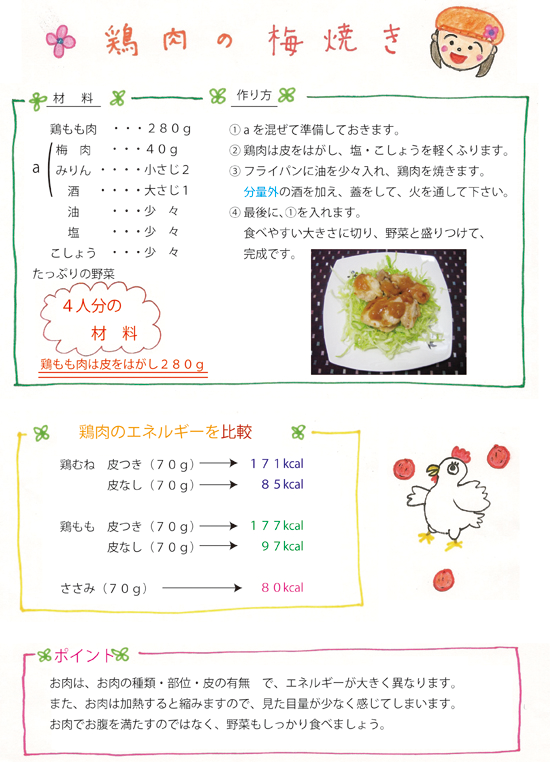 鶏肉の梅焼き
材　料
鶏もも肉　・・・２８０ｇ
a
梅　肉　・・・４０ｇ
みりん・・・・小さじ２
酒　・・・・大さじ１
油　・・・少　々
塩　・・・少　々
こしょう　・・・少　々
たっぷりの野菜
４人分の
材　料
鶏もも肉は皮をはがし２８０ｇ
作り方
①ａを混ぜて準備しておきます。
②鶏肉は皮をはがし、塩・こしょうを軽くふります。
③フライパンに油を少々入れ、鶏肉を焼きます。
分量外の酒を加え、蓋をして、火を通して下さい。
④最後に、①を入れます。
食べやすい大きさに切り、野菜と盛りつけて、
完成です。
鶏肉のエネルギーを比較
鶏むね　皮つき（７０ｇ）→　１７１kcal
皮なし（７０ｇ）→　８５kcal
鶏もも　皮つき（７０ｇ）→　１７７kcal
皮なし（７０ｇ）→　９７kcal
ささみ（７０ｇ）→　８０kcal
ポイント
お肉は、お肉の種類・部位・皮の有無　で、エネルギーが大きく異なります。
また、お肉は加熱すると縮みますので、見た目量が少なく感じてしまいます。
お肉でお腹を満たすのではなく、野菜もしっかり食べましょう。